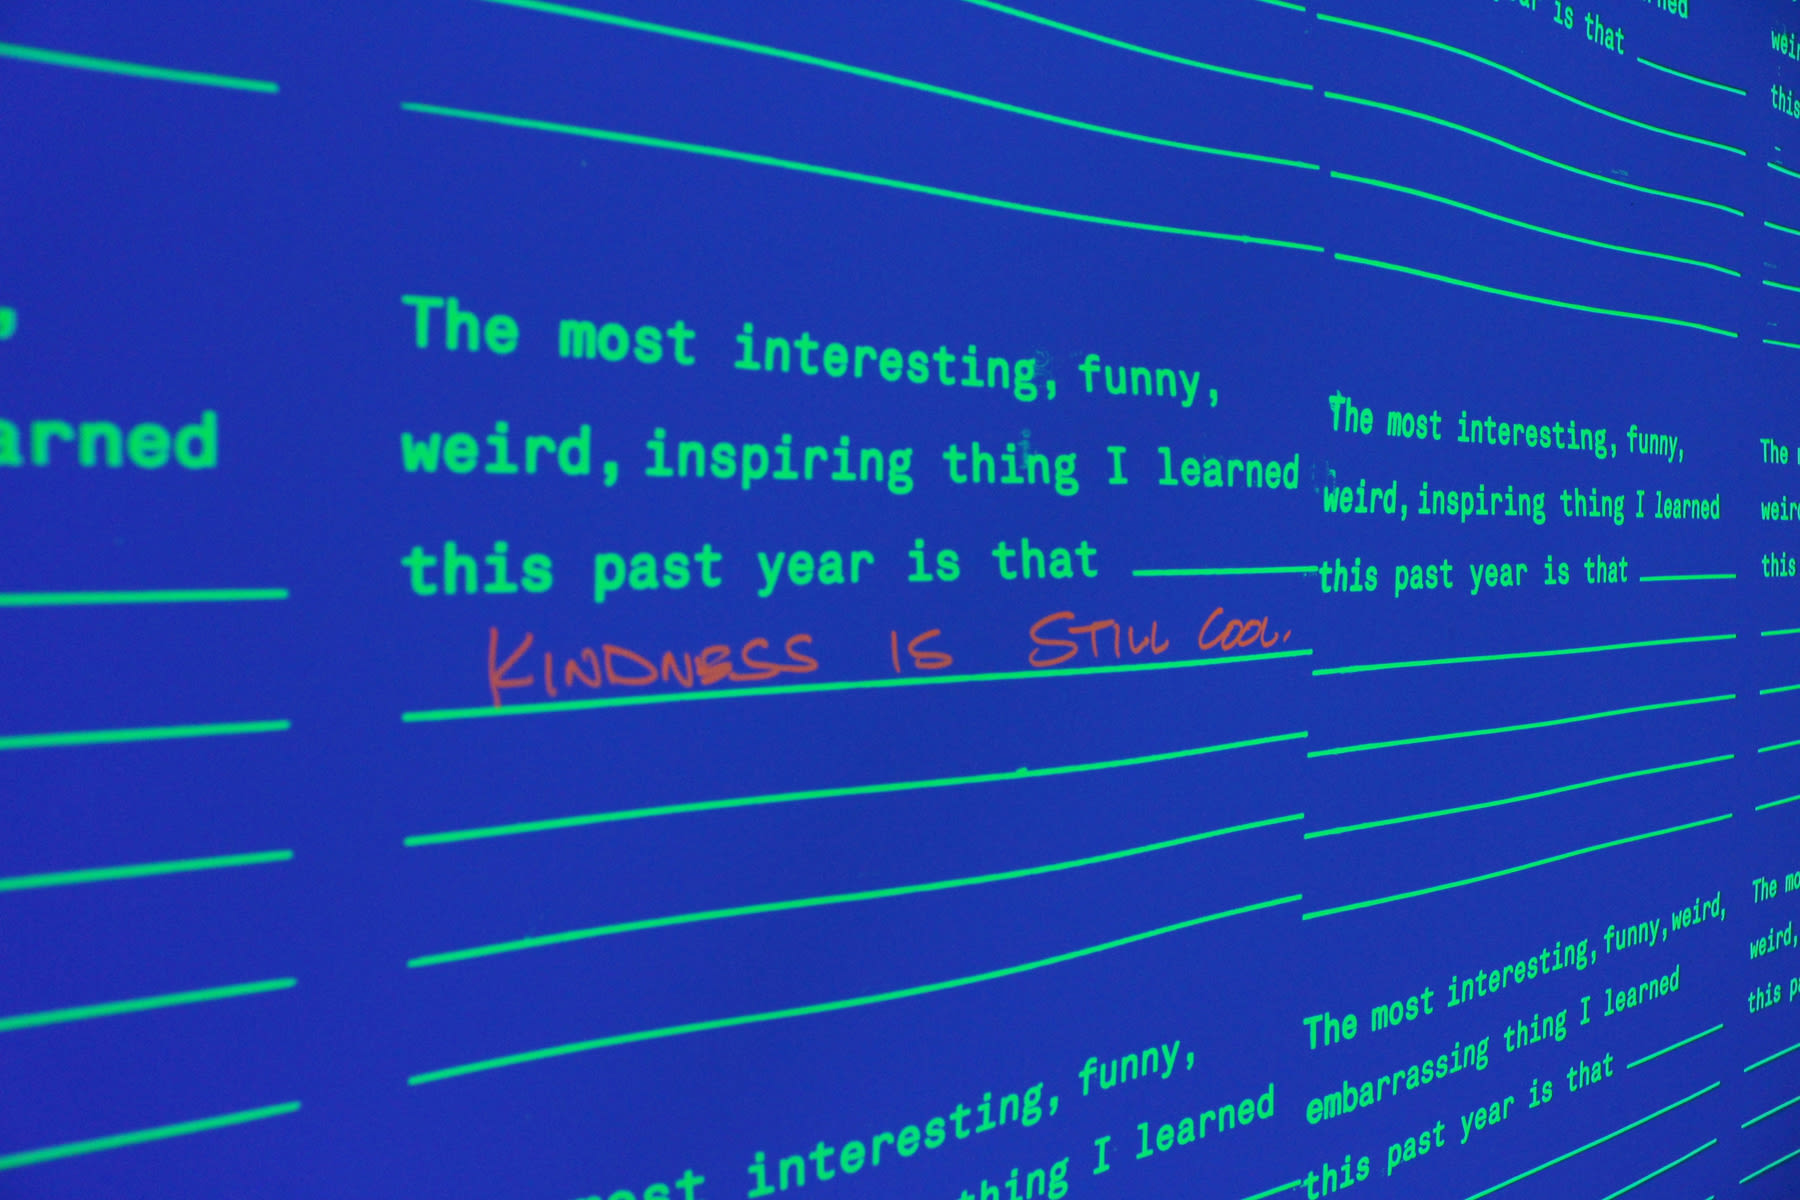 is that
weir
this
,
arned
The most interesting, funny,
weird, inspiring thing I learned
this past year is that
KINDNESS IS STILL COOL.
The most interesting, funny,
weird, inspiring thing I learned
this past year is that
The
weird
this
interesting, funny,
thing I learned
The most interesting, funny, weird,
embarrassing thing I learned
this past year is that
The mo
weird,
this pa